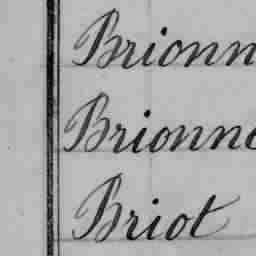 Brionn
Brionne
Briot